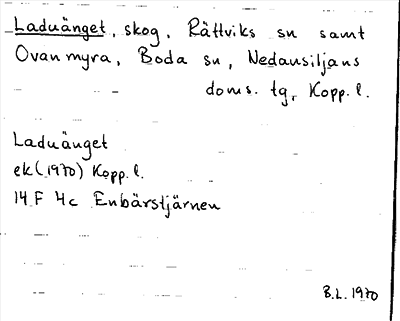 Laduänget, skog, Rättviks sn samt
Ovanmyra, Boda sn, Nedansiljans
doms. tg, Kopp. l.
Laduänget
ek (1970) Kopp. l.
14 F 4c Enbärstjärnen
B.L. 1970